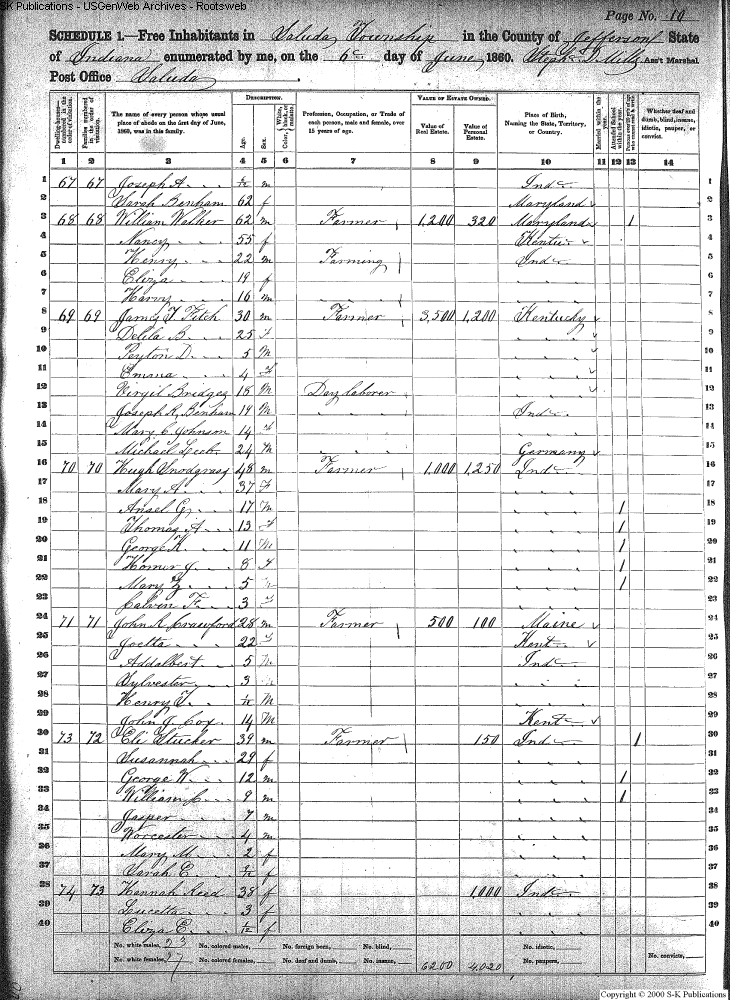 S-K Publications - USGenWeb Archives - Rootsweb
Page No. 10
SCHEDULE 1.—Free Inhabitants in Saluda Township in the County of Jefferson State
of Indiana enumerated by me, on the 6th day of June, 1860. Ass't Marshal
Post Office Saluda
Dwelling-houses—numbered in the order of visitation.
Families numbered in the order of visitation.
The name of every person whose usual place of abode on the first day of June, 1860, was in this family.
DESCRIPTION.
Age.
Sex.
Color, White, black, or mulatto.
Profession, Occupation, or Trade of each person, male and female, over 15 years of age.
VALUE OF ESTATE OWNED.
Value of Real Estate.
Value of Personal Estate.
Place of Birth, Naming the State, Territory, or Country.
Married within the year.
Attended School within the year.
Whether deaf and dumb, blind, insane, idiotic, pauper, or convict.
1 2 3 4 5 6 7 8 9 10 11 12 13 14
1 67 67 Joseph A. m Ind 1
2 Sarah Benham 62 f Maryland 2
3 68 68 William Walker 62 m Farmer 1,200 320 Maryland 1 3
4 Nancy 55 f Kentu 4
5 Henry 22 m Farming Ind 5
6 Eliza 19 f 6
7 Harvy 16 m 7
8 69 69 James T. Fitch 30 m Farmer 3,500 1,200 Kentucky 8
9 Delila B. 25 f 9
10 Peyton D. 5 M 10
11 Emma 4 f 11
12 Virgil Bridges 18 M Day laborer 12
13 Joseph R. Benham 19 M Ind 13
14 Mary C. Johnson 14 f 14
15 Michael 24 M Germany 15
16 70 70 Hugh Snodgrass 48 m Farmer 1,000 1,250 Ind 16
17 Mary A. 37 f 17
18 Ansel G. 17 M 1 18
19 Thomas A. 13 1 19
20 George K. 11 M 1 20
21 Homer J. 8 1 21
22 Mary 5 1 22
23 Calven F. 3 23
24 71 71 John R. Crawford 28 m Farmer 500 100 Maine 24
25 Joetta 22 f Kent 25
26 Addalbert 5 M Ind 26
27 Sylvester 3 27
28 Henry M 28
29 John J. Cox 14 M Kent 29
30 73 72 Eli Stucker 39 m Farmer 150 Ind 1 30
31 Susannah 29 f 31
32 George W. 12 m 1 32
33 William 9 m 1 33
34 Jasper 7 m 34
35 Worcester 4 m 35
36 Mary M. 2 f 36
37 Sarah E. f 37
38 74 73 Hannah Reed 38 f 1,000 Ind 38
39 Lucetta 3 f 39
40 Eliza E. f 40
No. white males, 23 No. colored males, No. foreign born, No. blind, No. idiotic,
No. white females, 17 No. colored females, No. deaf and dumb, No. insane, 6200 4,020 No. paupers, No. convicts,
Copyright © 2000 S-K Publications